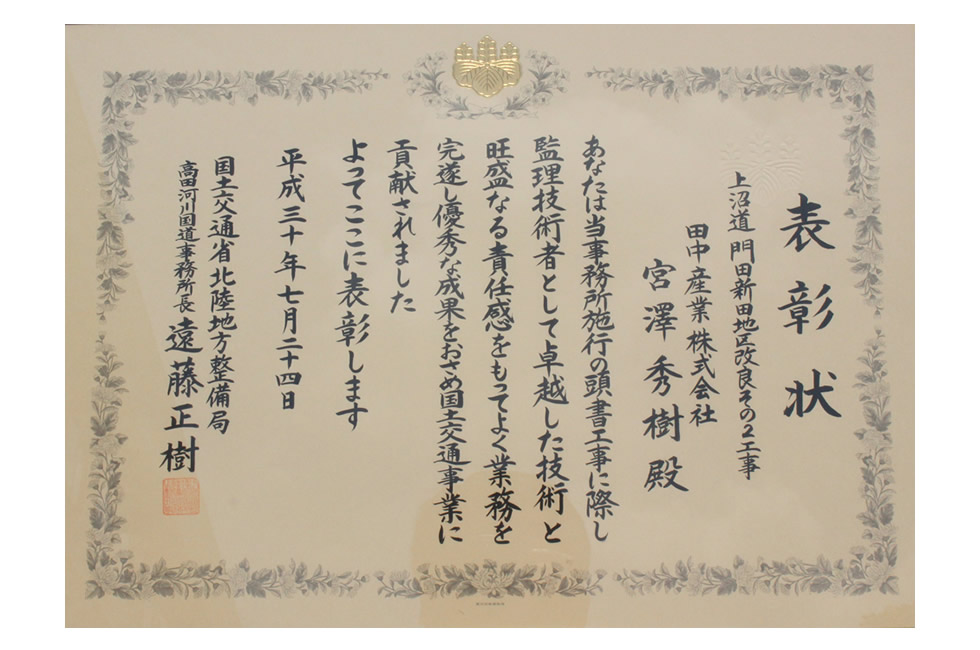 表彰状
上沼道 門田新田地区改良その2工事
田中産業株式会社
宮澤秀樹殿
あなたは当事務所施行の頭書工事に際し
監理技術者として卓越した技術と
旺盛なる責任感をもってよく業務を
完遂し優秀な成果をおさめ国土交通事業に
貢献されました
よってここに表彰します
平成三十年七月二十四日
国土交通省北陸地方整備局
高田河川国道事務所長 遠藤正樹